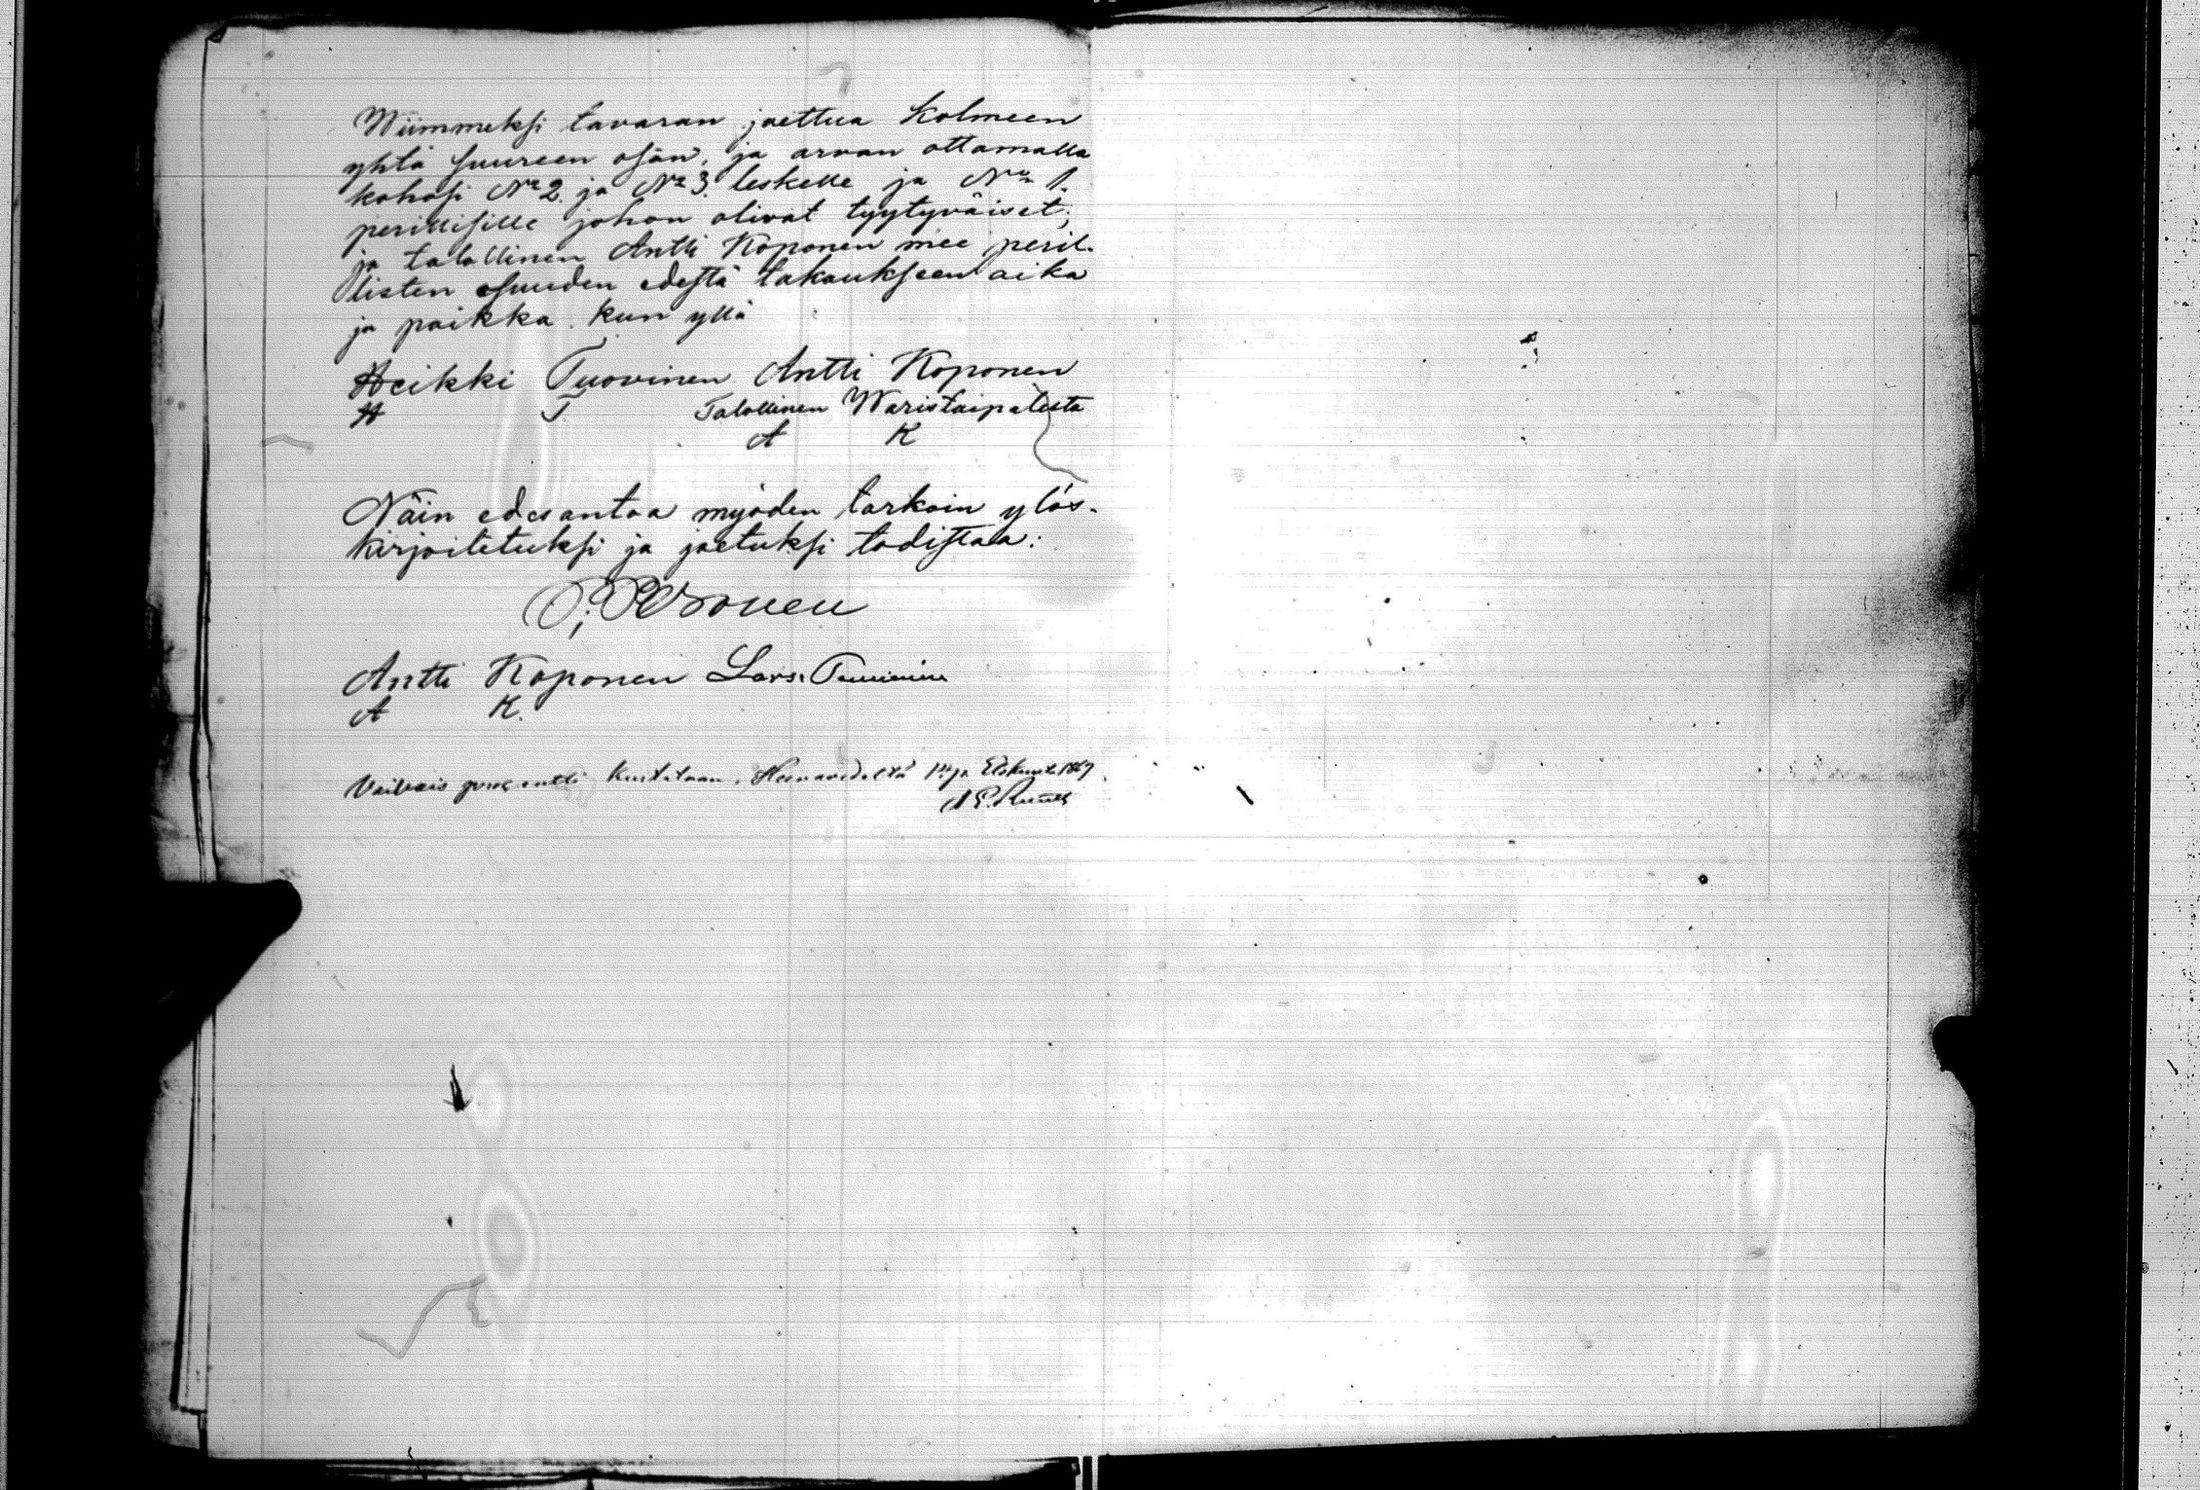 Wiimmeksi tavaran jaettua Kolmeen
yhtä suureen osan, ja arvan ottamalla
kohosi No 2. ja No 3. leskelle ja No 1.
perillisille johon olivat tyytyväiset;
ja talollinen Antti Koponen mee peril-
listen osuuden edestä takaukseen aika
ja paikka kun yllä
Heikki Tuovinen Antti Koponen
H T. Talollinen Waristaipaleesta
A K
Näin edesantoa myöden tarkoin ylös-
kirjoitetuksi ja jaetuksi todistaa:
Antti Koponen Lars
A K.
Vaivais prosentti Kuitataan, Heinävedeltä 1869